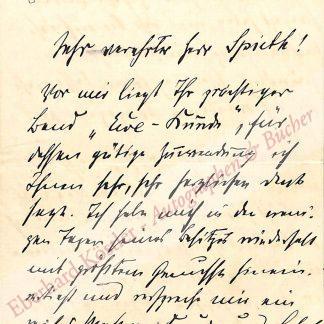 Sehr verehrter Herr Spieth!
Vor mir liegt Ihr prächtiger
Band „Ewe-Kunde“, für
dessen gütige Zuwendung ich
Ihnen sehr, sehr herzlichen Dank
sage. Ich habe mich in den weni-
gen Tagen seines Besitzes wiederholt
mit größtem Genusse hinein-
und verspreche mir ein
Eberhard Köstler Autographen & Bücher